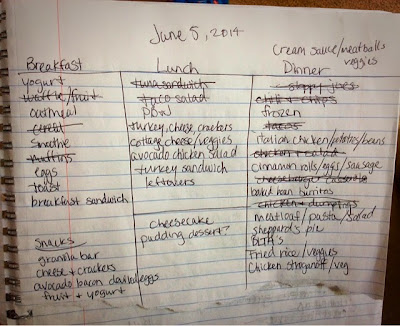 June 5, 2014
Cream sauce/meatballs
veggies
Breakfast
yogurt
waffle/fruit
oatmeal
cereal
Smothie
muffins
eggs
toast
breakfast sandwich
Snacks
granola bar
cheese & crackers
avocado bacon deviled eggs
fruit & yogurt
Lunch
tuna sandwich
taco salad
PB&J
turkey, cheese, crackers
cottage cheese/veggies
avocado chicken salad
turkey sandwich
leftovers
cheesecake
pudding dessert?
Dinner
sloppy joes
chili & chips
frozen
tacos
italian chicken/potatoes/beans
chicken & salad
cinnamon rolls/eggs/sausage
cheeseburger casserole
baked bean burritos
chicken & dumplings
meatloaf/pasta/salad
sheppard's pie
BLTA's
Fried rice/veggies
Chicken stroganoff/veg